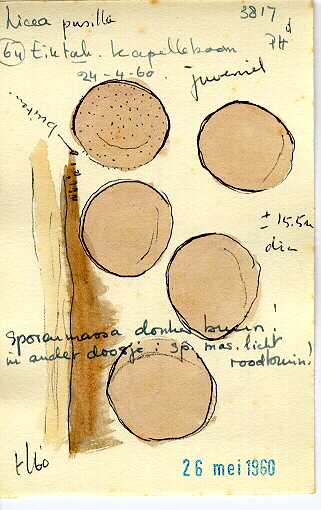 Licea pusilla
3817
64 Eiktak. Kapelleboom
24-4-60.
juveniel
buiten
± 15.5
dia
Sporenmassa donker bruin!
in ander doosje: sp. mas. licht
roodbruin!
t/60
26 mei 1960